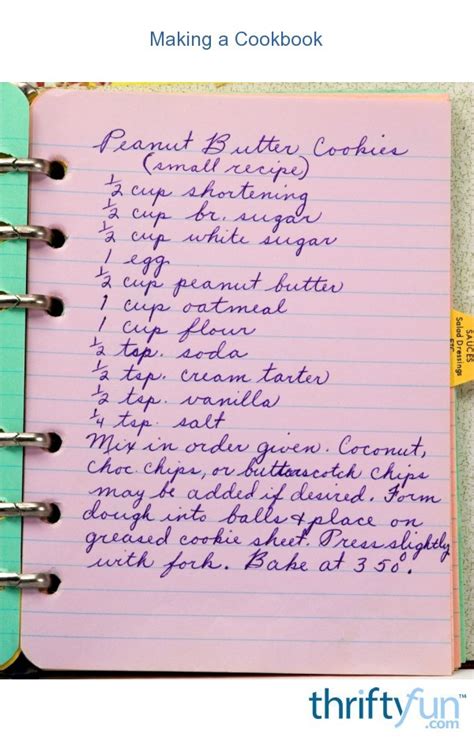 Making a Cookbook
Peanut Butter Cookies
(small recipe)
1/2 cup shortening
1/2 cup br. sugar
1/2 cup white sugar
1 egg
1/2 cup peanut butter
1 cup oatmeal
1 cup flour
1/2 tsp. soda
1/2 tsp. cream tarter
1/2 tsp. vanilla
1/4 tsp salt
Mix in order given. Coconut,
choc. chips, or butterscotch chips
may be added if desired. Form
dough into balls & place on
greased cookie sheet. Press slightly
with fork. Bake at 350°.
SAUCES
Salad Dressings
ETC
thriftyfun™
.com